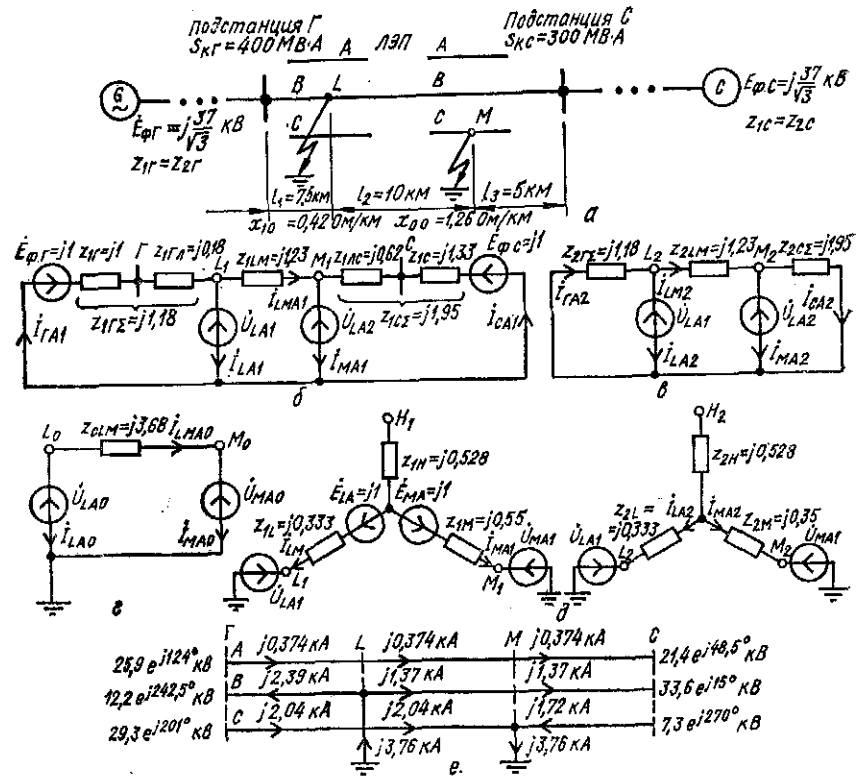 Подстанция Г
S_КГ=400 МВ·А
ЛЭП
Подстанция С
S_КС=300 МВ·А
A
A
B
L
B
C
C
M
G
С
Ė_ФГ=j37/√3 кВ
z_1Г=z_2Г
E_Ф.С=j37/√3 кВ
z_1С=z_2С
l_1=7,5км
l_2=10км
l_3=5км
x_10=0,42 Ом/км
x_00=1,26 Ом/км
а
Ė_Ф.Г=j1
z_1Г=j1
Г
z_1ГЛ=j0,18
L_1
z_1LM=j1,23
M_1
z_1ЛС=j0,62
С
z_1С=j1,33
Ė_Ф.С=j1
z_1ГΣ=j1,18
İ_LMA1
z_1СΣ=j1,95
İ_ГА1
U̇_LA1
U̇_LA2
İ_СА1
İ_LA1
İ_MA1
б
z_2ГΣ=j1,18
L_2
z_2LM=j1,23
M_2
z_2СΣ=j1,95
İ_ГА2
İ_LM2
İ_СА2
U̇_LA1
U̇_LA2
İ_LA2
İ_MA2
в
L_0
z_0LM=j3,68
İ_LMA0
M_0
U̇_LA0
U̇_MA0
İ_LA0
İ_MA0
г
H_1
z_1H=j0,528
Ė_LA=j1
Ė_MA=j1
z_1L=j0,333
z_1M=j0,55
İ_LM
İ_MA1
U̇_MA1
L_1
M_1
U̇_LA1
H_2
z_2H=j0,528
z_2L=
=j0,333
İ_LA2
İ_MA2
z_2M=j0,35
U̇_LA1
U̇_MA1
L_2
M_2
д
Г
A
j0,374 кА
L
j0,374 кА
M
j0,374 кА
С
25,9 e^j124° кВ
21,4 e^j48,5° кВ
B
j2,39 кА
j1,37 кА
j1,37 кА
12,2 e^j242,5° кВ
33,6 e^j15° кВ
C
j2,04 кА
j2,04 кА
j1,72 кА
29,3 e^j201° кВ
7,3 e^j270° кВ
j3,76 кА
j3,76 кА
е.